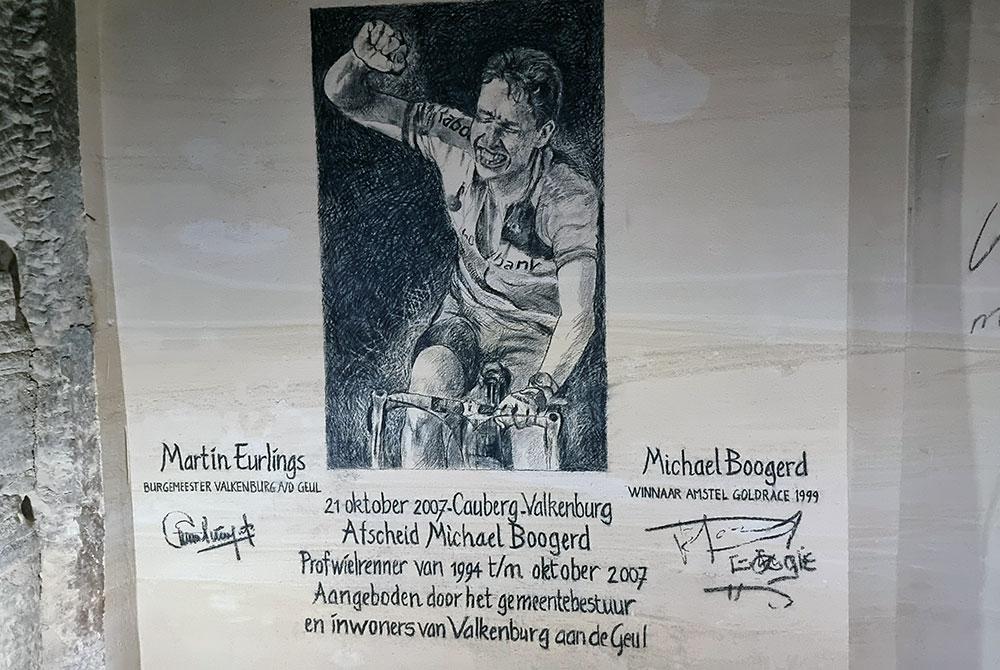 Rabo
bank
Martin Eurlings
BURGEMEESTER VALKENBURG A/D GEUL
Michael Boogerd
WINNAAR AMSTEL GOLDRACE 1999
21 oktober 2007-Cauberg-Valkenburg
Afscheid Michael Boogerd
Profwielrenner van 1994 t/m oktober 2007
Aangeboden door het gemeentebestuur
en inwoners van Valkenburg aan de Geul